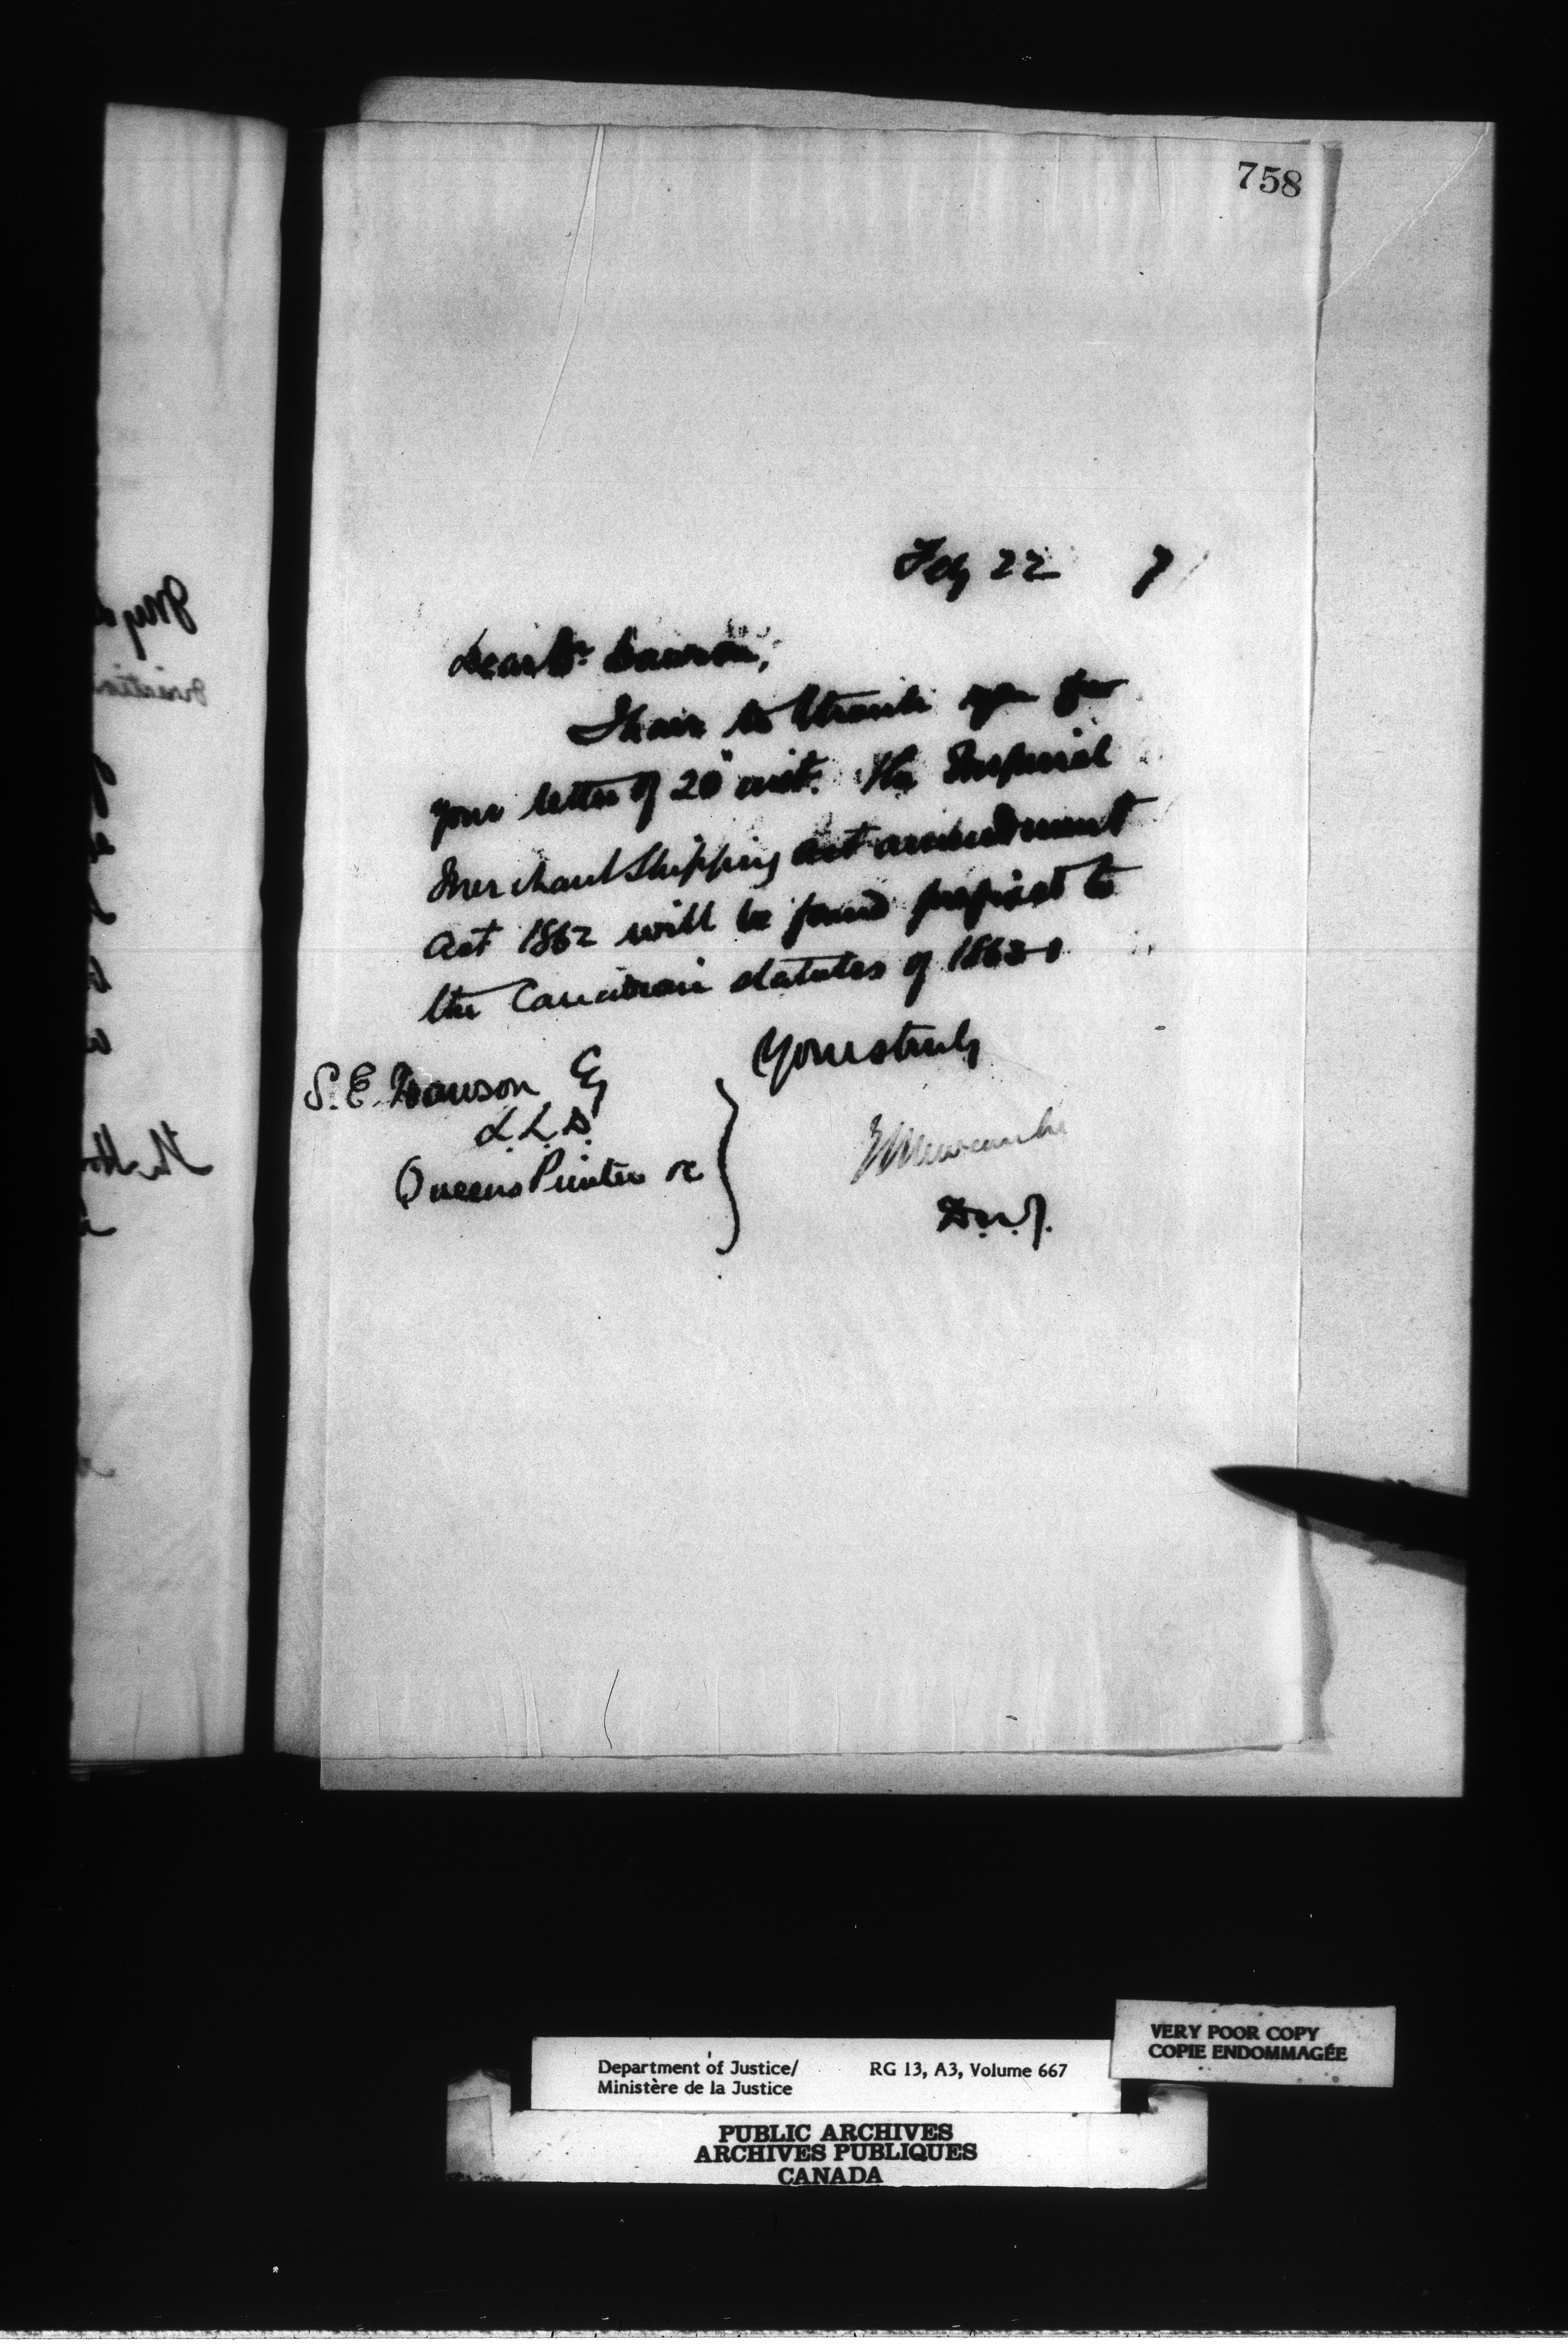 758
Feby 22 7
Dear Dr. Dawson,
I have to thank you for
your letter of 20" inst. The Imperial
Merchant Shipping act amendment
act 1862 will be found prefixed to
the Canadian statutes of 1863
Yours truly
S. E. Dawson Esq
L.L.D.
Queens Printer &c
E L Newcombe
D.M.J.
VERY POOR COPY
COPIE ENDOMMAGÉE
Department of Justice/ RG 13, A3, Volume 667
Ministère de la Justice
PUBLIC ARCHIVES
ARCHIVES PUBLIQUES
CANADA